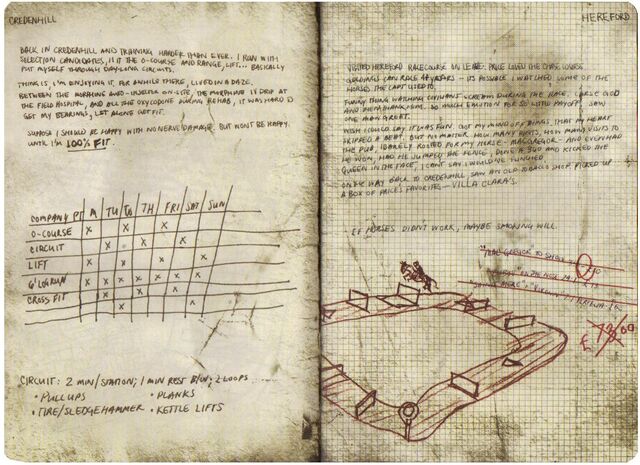 CREDENHILL
BACK IN CREDENHILL AND TRAINING HARDER THAN EVER. I RUN WITH
SELECTION CANDIDATES, HIT THE O-COURSE AND RANGE, LIFT... BASICALLY
PUT MYSELF THROUGH DAYLONG CIRCUITS.
THING IS, I'M ENJOYING IT. FOR AWHILE THERE, I LIVED IN A DAZE.
BETWEEN THE MORPHINE AUTO-INJECTOR ON-SITE, THE MORPHINE IV DRIP AT
THE FIELD HOSPITAL, AND ALL THE OXYCODONE DURING REHAB, IT WAS HARD TO
GET MY BEARINGS, LET ALONE GET FIT.
SUPPOSE I SHOULD BE HAPPY WITH NO NERVE DAMAGE. BUT WON'T BE HAPPY
UNTIL I'M 100% FIT.
COMPANY PT M TU TH FRI SAT SUN
O-COURSE X X
CIRCUIT
LIFT X X X
G'LOG RUN X X X X X X
CROSS FIT X X
CIRCUIT: 2 MIN/STATION; 1 MIN REST B/W; 2 LOOPS
• PULLUPS • PLANKS
• TIRE/SLEDGEHAMMER • KETTLE LIFTS
HEREFORD
VISITED HEREFORD RACECOURSE ON LEAVE. PRICE LOVED THE CHASE COURSE.
GELDINGS CAN RACE 4+ YEARS - IT'S POSSIBLE I WATCHED SOME OF THE
HORSES THE CAPT USED TO.
FUNNY THING WATCHING CIVILIANS SCREAM DURING THE RACE. CURSE GOD
AND THEN THANK HIM. SO MUCH EMOTION FOR SO LITTLE PAYOFF. SAW
ONE MAN
WISH I COULD SAY IT WAS FUN. GOT MY MIND OFF THINGS, THAT MY HEART
SKIPPED A BEAT. BUT NO MATTER HOW MANY PINTS, HOW MANY VISITS TO
THE PUB, I BARELY ROOTED FOR MY HORSE - MACGREGOR - AND EVEN HAD
HE WON, HAD HE JUMPED THE FENCE, DONE A 360 AND KICKED THE
QUEEN IN THE FACE, I CAN'T SAY I WOULD'VE FLINCHED.
ON THE WAY BACK TO CREDENHILL, SAW AN OLD TOBACCO SHOP. PICKED UP
A BOX OF PRICE'S FAVORITE - VILLA CLARA'S.
IF HORSES DIDN'T WORK, MAYBE SMOKING WILL.
£